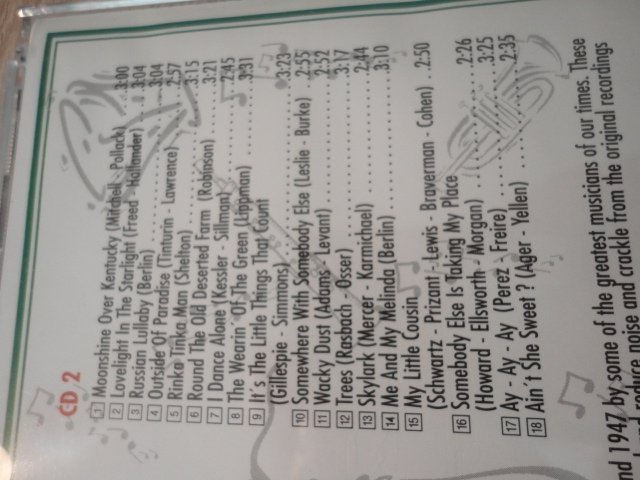 CD 2
1 Moonshine Over Kentucky (Mitchell - Pollack) 3:00
2 Lovelight In The Starlight (Freed - Hollander) 3:04
3 Russian Lullaby (Berlin) 3:04
4 Outside Of Paradise (Tinturin - Lawrence) 2:57
5 Rinka Tinka Man (Shelton) 3:15
6 Round The Old Deserted Farm (Robinson) 3:21
7 I Dance Alone (Kessler - Sillman) 2:45
8 The Wearin´ Of The Green (Lippman) 3:31
9 It´s The Little Things That Count
(Gillespie - Simmons) 3:23
10 Somewhere With Somebody Else (Leslie - Burke) 2:55
11 Wacky Dust (Adams - Levant) 2:52
12 Trees (Rasbach - Osser) 3:17
13 Skylark (Mercer - Karmichael) 2:44
14 Me And My Melinda (Berlin) 3:10
15 My Little Cousin
(Schwartz - Prizant - Lewis - Braverman - Cohen) 2:50
16 Somebody Else Is Taking My Place
(Howard - Ellsworth - Morgan) 2:26
17 Ay - Ay - Ay (Perez - Freire) 3:25
18 Ain´t She Sweet ? (Ager - Yellen) 2:35
nd 1947 by some of the greatest musicians of our times. These
noise and crackle from the original recordings